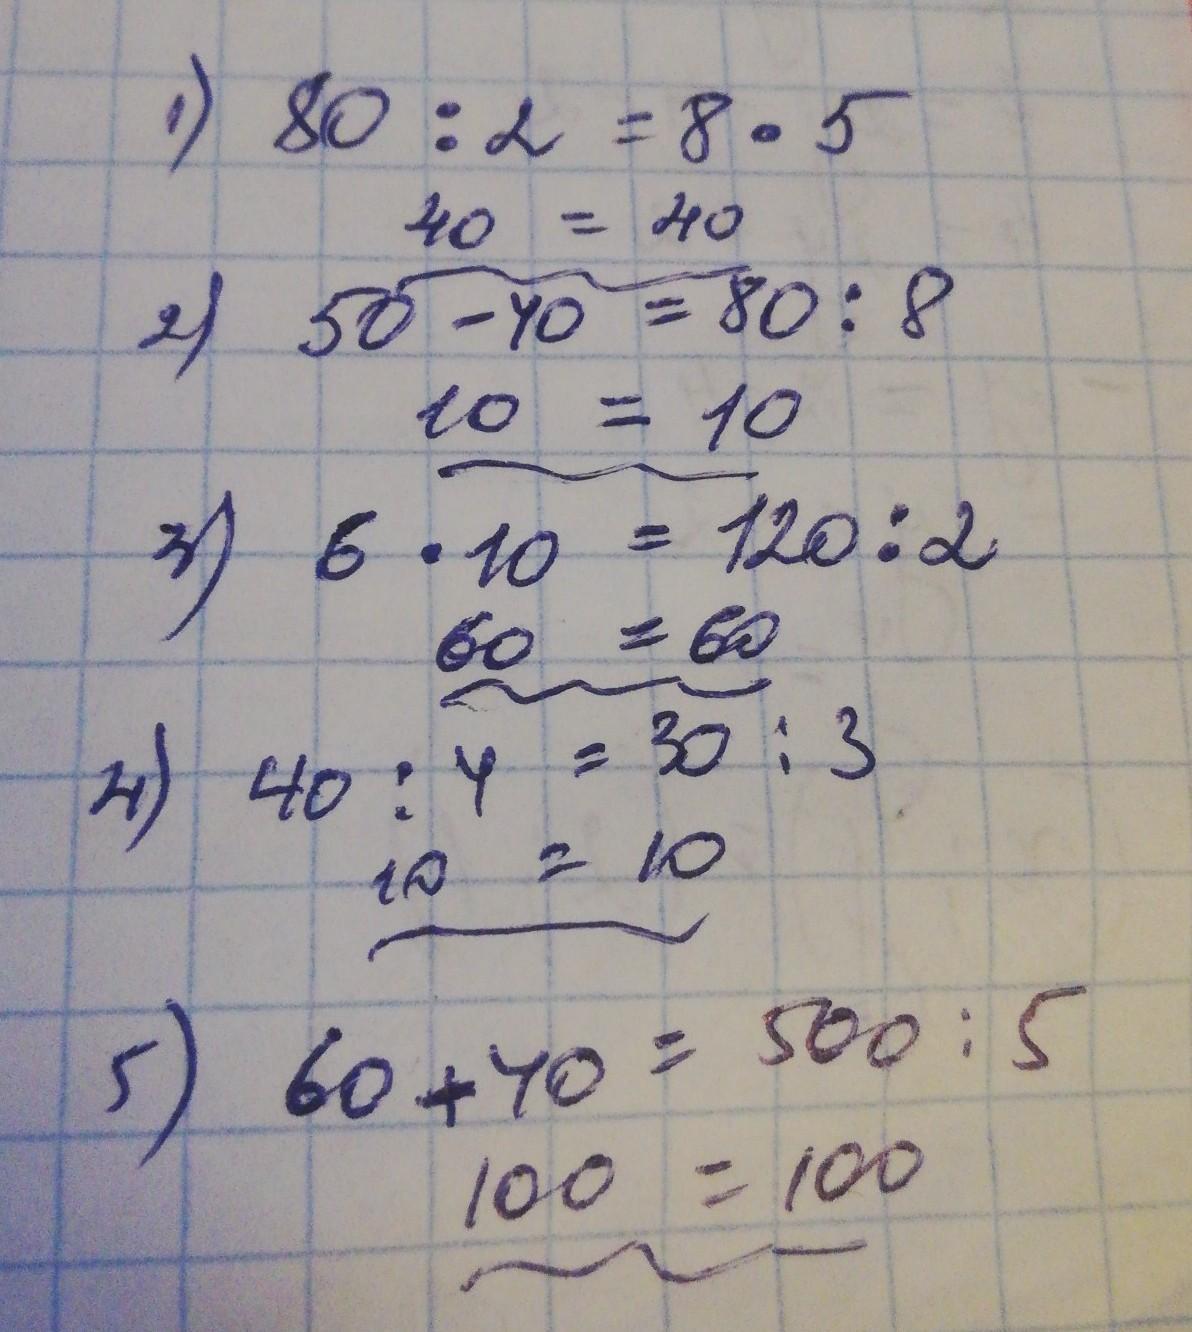 1) 80 : 2 = 8 · 5
40 = 40
2) 50 - 40 = 80 : 8
10 = 10
3) 6 · 10 = 120 : 2
60 = 60
4) 40 : 4 = 30 : 3
10 = 10
5) 60 + 40 = 500 : 5
100 = 100